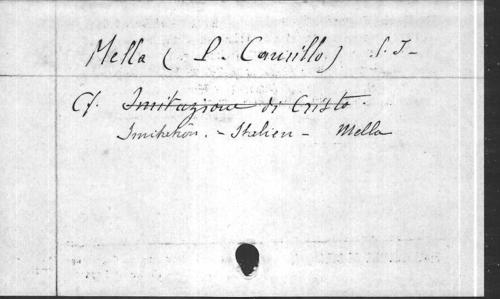 Mella (P. Camillo) S. J-
Cf. Imitazione di Cristo.
Imitation. - Italien - Mella